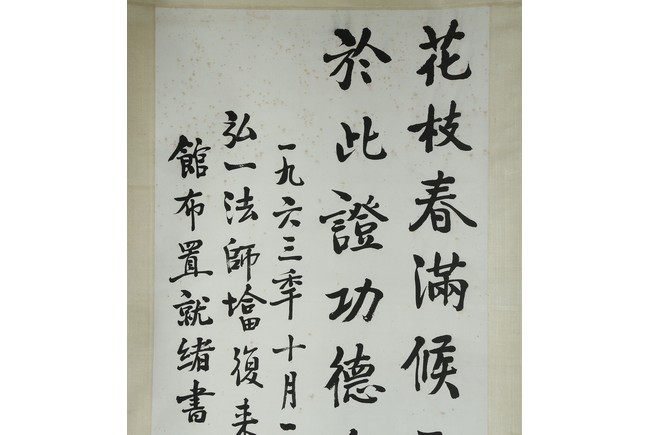 花枝春滿候
於此證功德
一九六三年十月一
弘一法師墖復来
館布置就緒書